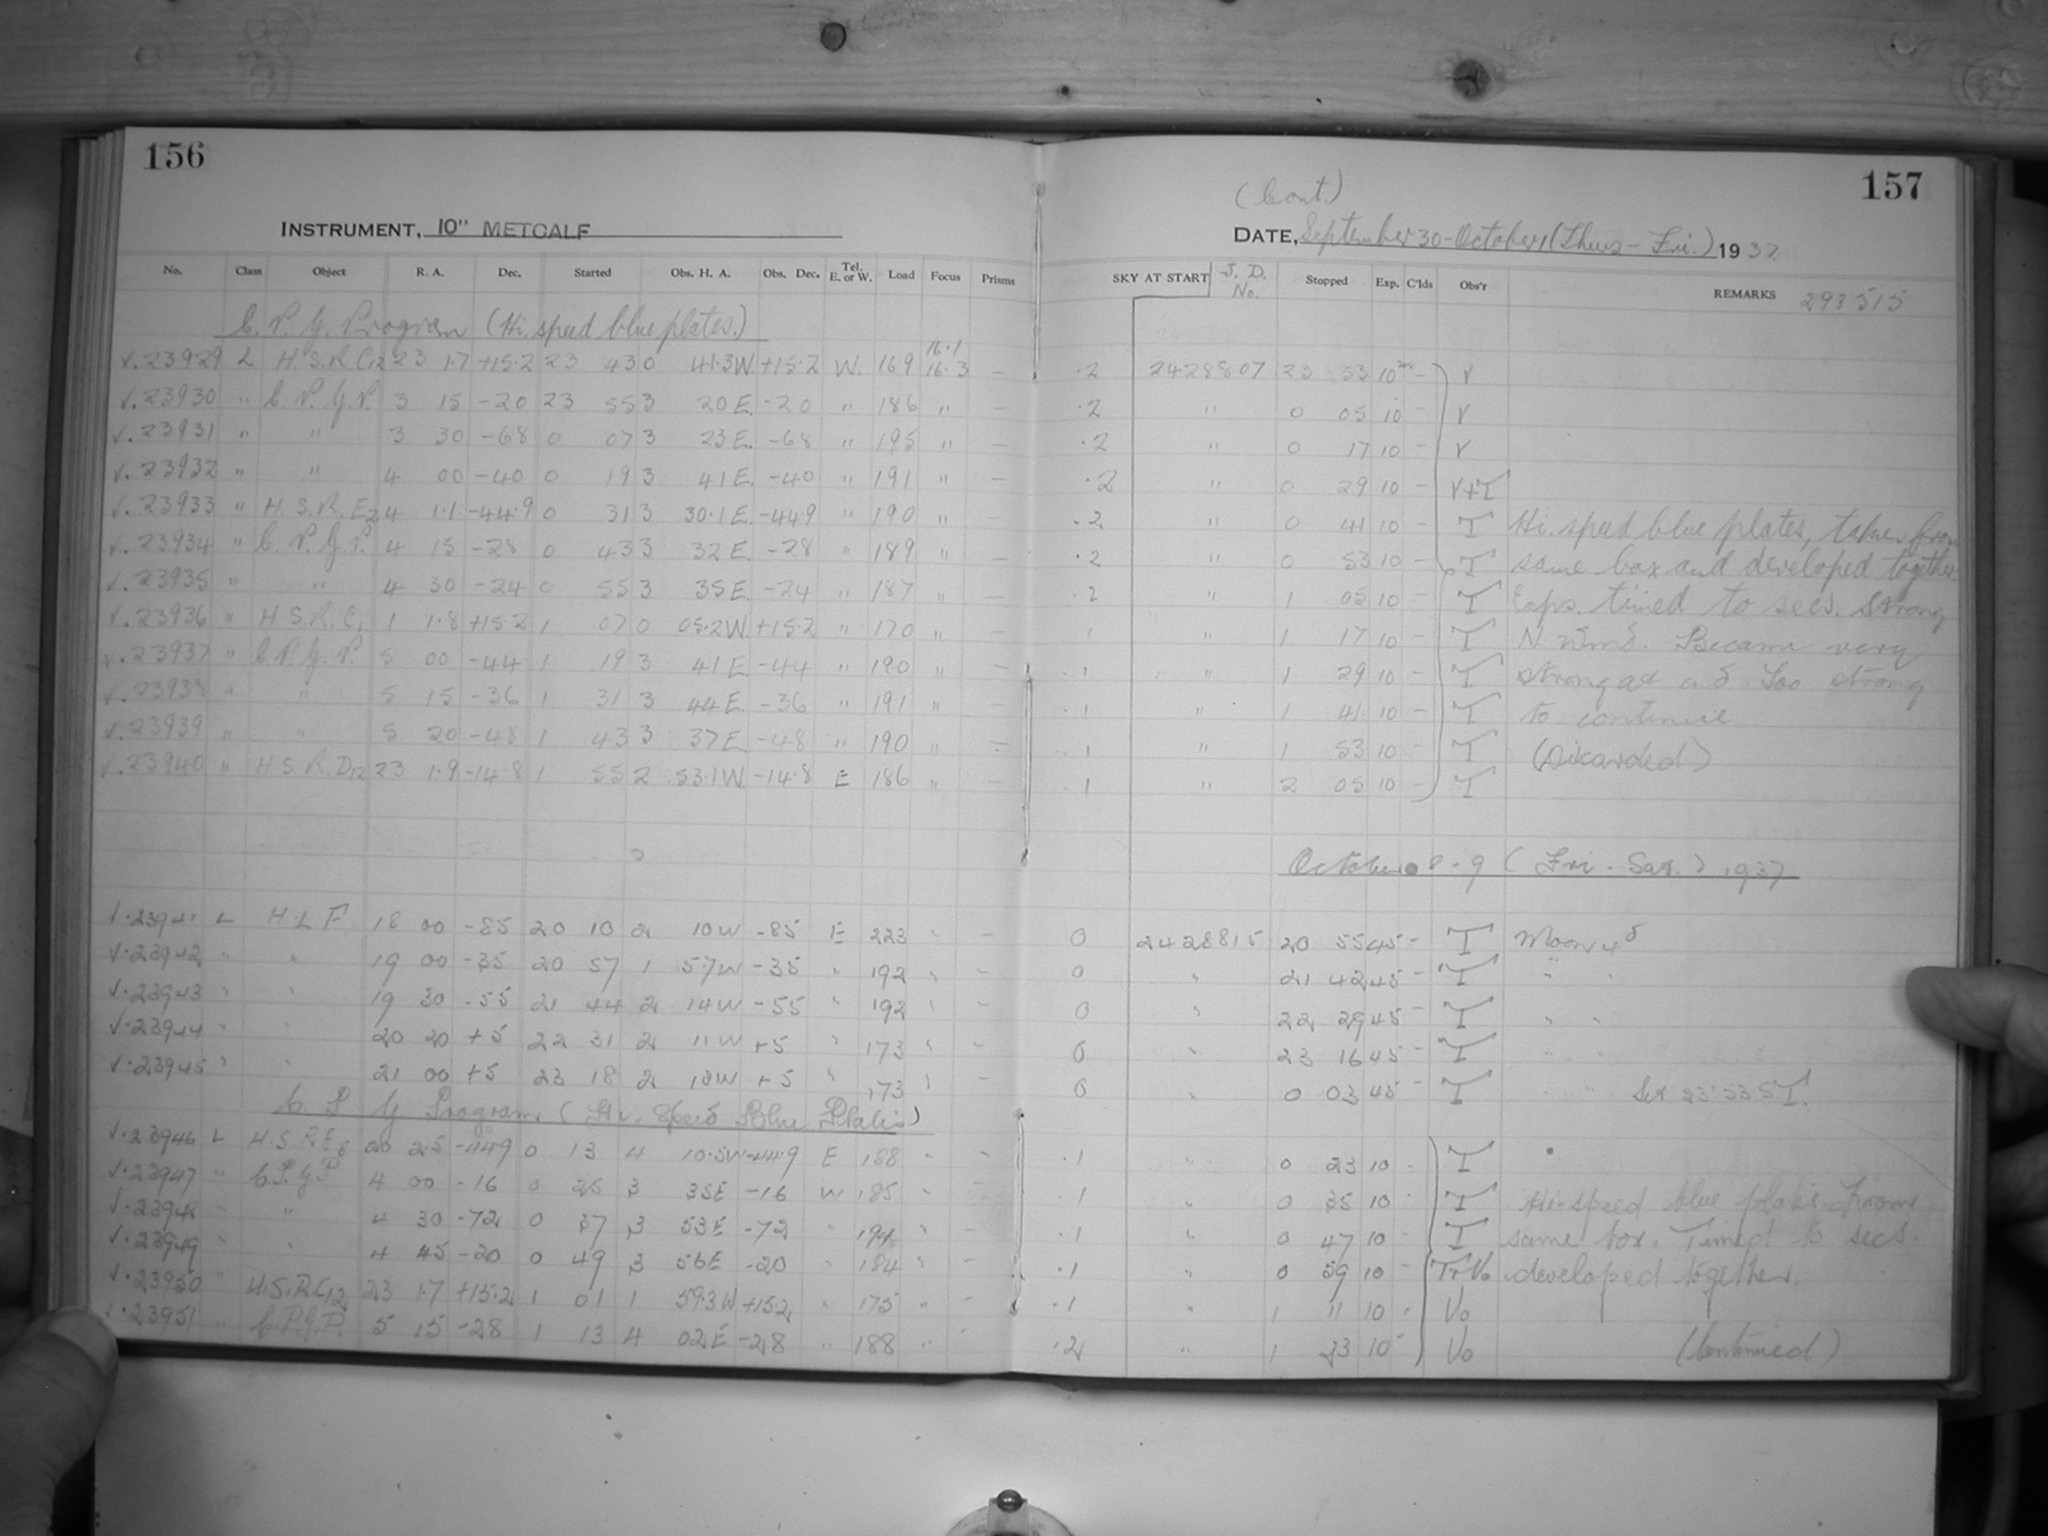 156
INSTRUMENT, 10" METCALF
No. Class Object R. A. Dec. Started Obs. H. A. Obs. Dec. Tel. E. or W. Load Focus Prisms
C. P. G. Program (Hi. speed blue plates.)
16.1
√.23929 L H.S.R.C12 23 1.7 +15.2 23 43 0 41.3W. +15.2 W. 169 16.3 –
√.23930 " C.P.G.P. 3 15 -20 23 55 3 20E. -20 " 186 " –
√.23931 " " 3 30 -68 0 07 3 23E. -68 " 195 " –
√.23932 " " 4 00 -40 0 19 3 41E. -40 " 191 " –
√.23933 " H.S.R.E2 4 1.1 -44.9 0 31 3 30.1E. -44.9 " 190 " –
√.23934 " C.P.G.P. 4 15 -28 0 43 3 32E. -28 " 189 " –
√.23935 " " 4 30 -24 0 55 3 35E. -24 " 187 " –
√.23936 " H.S.R.C1 1 1.8 +15.2 1 07 0 05.2W +15.2 " 170 " –
√.23937 " C.P.G.P. 5 00 -44 1 19 3 41E. -44 " 190 " –
√.23938 " " 5 15 -36 1 31 3 44E. -36 " 191 " –
√.23939 " " 5 20 -48 1 43 3 37E. -48 " 190 " –
√.23940 " H.S.R.D12 23 1.9 -14.8 1 55 2 53.1W. -14.8 E 186 " –
√.23941 L H L F 18 00 -85 20 10 2 10W -85 E 223 " –
√.23942 " 19 00 -35 20 57 1 57W -35 " 192 " –
√.23943 " " 19 30 -55 21 44 2 14W -55 " 192 " –
√.23944 " " 20 20 +5 22 31 2 11W +5 " 173 " –
√.23945 " " 21 00 +5 23 18 2 18W +5 " 173 " –
C P G Program (Hi. Speed Blue Plates)
√.23946 L H.S.R.E8 20 2.5 -44.9 0 13 4 10.5W -44.9 E 188 " –
√.23947 " C.P.G.P 4 00 -16 0 25 3 35E -16 W 185 " –
√.23948 " " 4 30 -72 0 37 3 53E -72 " 194 " –
√.23949 " " 4 45 -20 0 49 3 56E -20 " 184 " –
√.23950 " H.S.R.C12 23 1.7 +15.2 1 01 1 59.3W +15.2 " 175 " –
√.23951 " C.P.G.P. 5 15 -28 1 13 4 02E -28 " 188 " –
157
(Cont.)
DATE, September 30-October 1 (Thurs-Fri.) 1937
SKY AT START J. D. No. Stopped Exp. C'lds Obs'r REMARKS 293515
.2 2428807 23 53 10m – V
.2 " 0 05 10 – V
.2 " 0 17 10 – V
.2 " 0 29 10 – V+T
.2 " 0 41 10 – T Hi. speed blue plates, taken from
.2 " 0 53 10 – T same box and developed together.
.2 " 1 05 10 – T Exps. timed to secs. Strong
.1 " 1 17 10 – T N. wind. Became very
.1 " 1 29 10 – T strong at end. Too strong
.1 " 1 41 10 – T to continue
.1 " 1 53 10 – T (Discarded)
.1 " 2 05 10 – T
October 8-9 (Fri-Sat.) 1937
0 2428815 20 55 45 – T Moon 4d
0 " 21 42 45 – T " "
0 " 22 29 45 – T " "
0 " 23 16 45 – T " "
0 " 0 03 45 – T " " Set 23 53 ST.
.1 " 0 23 10 – T
.1 " 0 35 10 – T Hi-speed blue plates from
.1 " 0 47 10 – T same box. Timed to secs.
.1 " 0 59 10 – T+Vo developed together.
.1 " 1 11 10 – Vo
.2 " 1 23 10 – Vo (Continued)